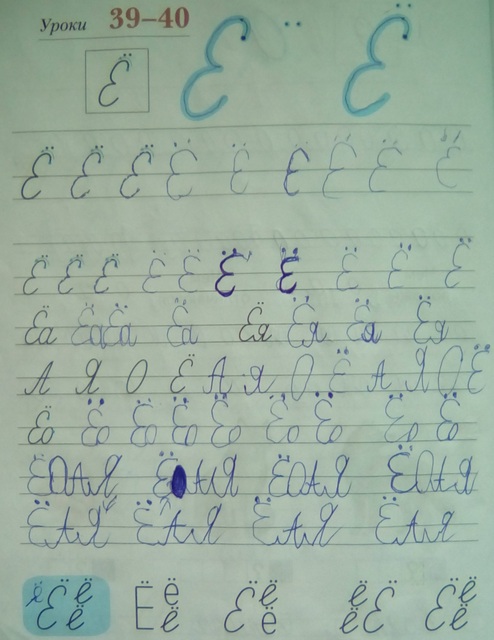 Уроки 39–40
Ё Ё Ё
Ё Ё Ё Ё Ё Ё Ё Ё Ё
Ё Ё Ё Ё Ё Ё Ё Ё Ё Ё
Ёа ЁаЁа Ёа Ёя Ёя Ёя Ёя
А Я О Ё А Я О Ё А Я О Ё
Ёо Ёо Ёо Ёо Ёо Ёо Ёо Ёо Ёо
ЁОАЯ ЁОАЯ ЁОАЯ
ЁАЯ ЁАЯ ЁАЯ ЁАЯ
ё Ё ё ё Ё ё ё Ё ё ё ё ё Ё Ё ё ё